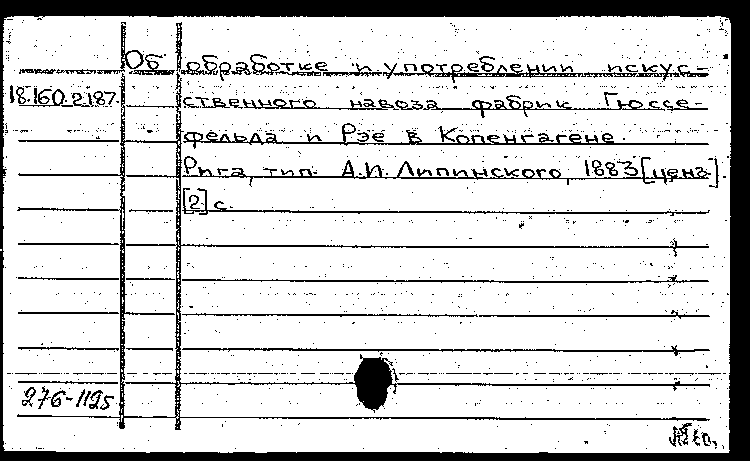 Об обработке и употреблении искус-
18.160.2.187. ственного навоза фабрик Гюссе-
фельда и Рэе в Копенгагене.
Рига, тип. А.И. Липинского, 1883 [ценз.].
[2] с.
276-1125